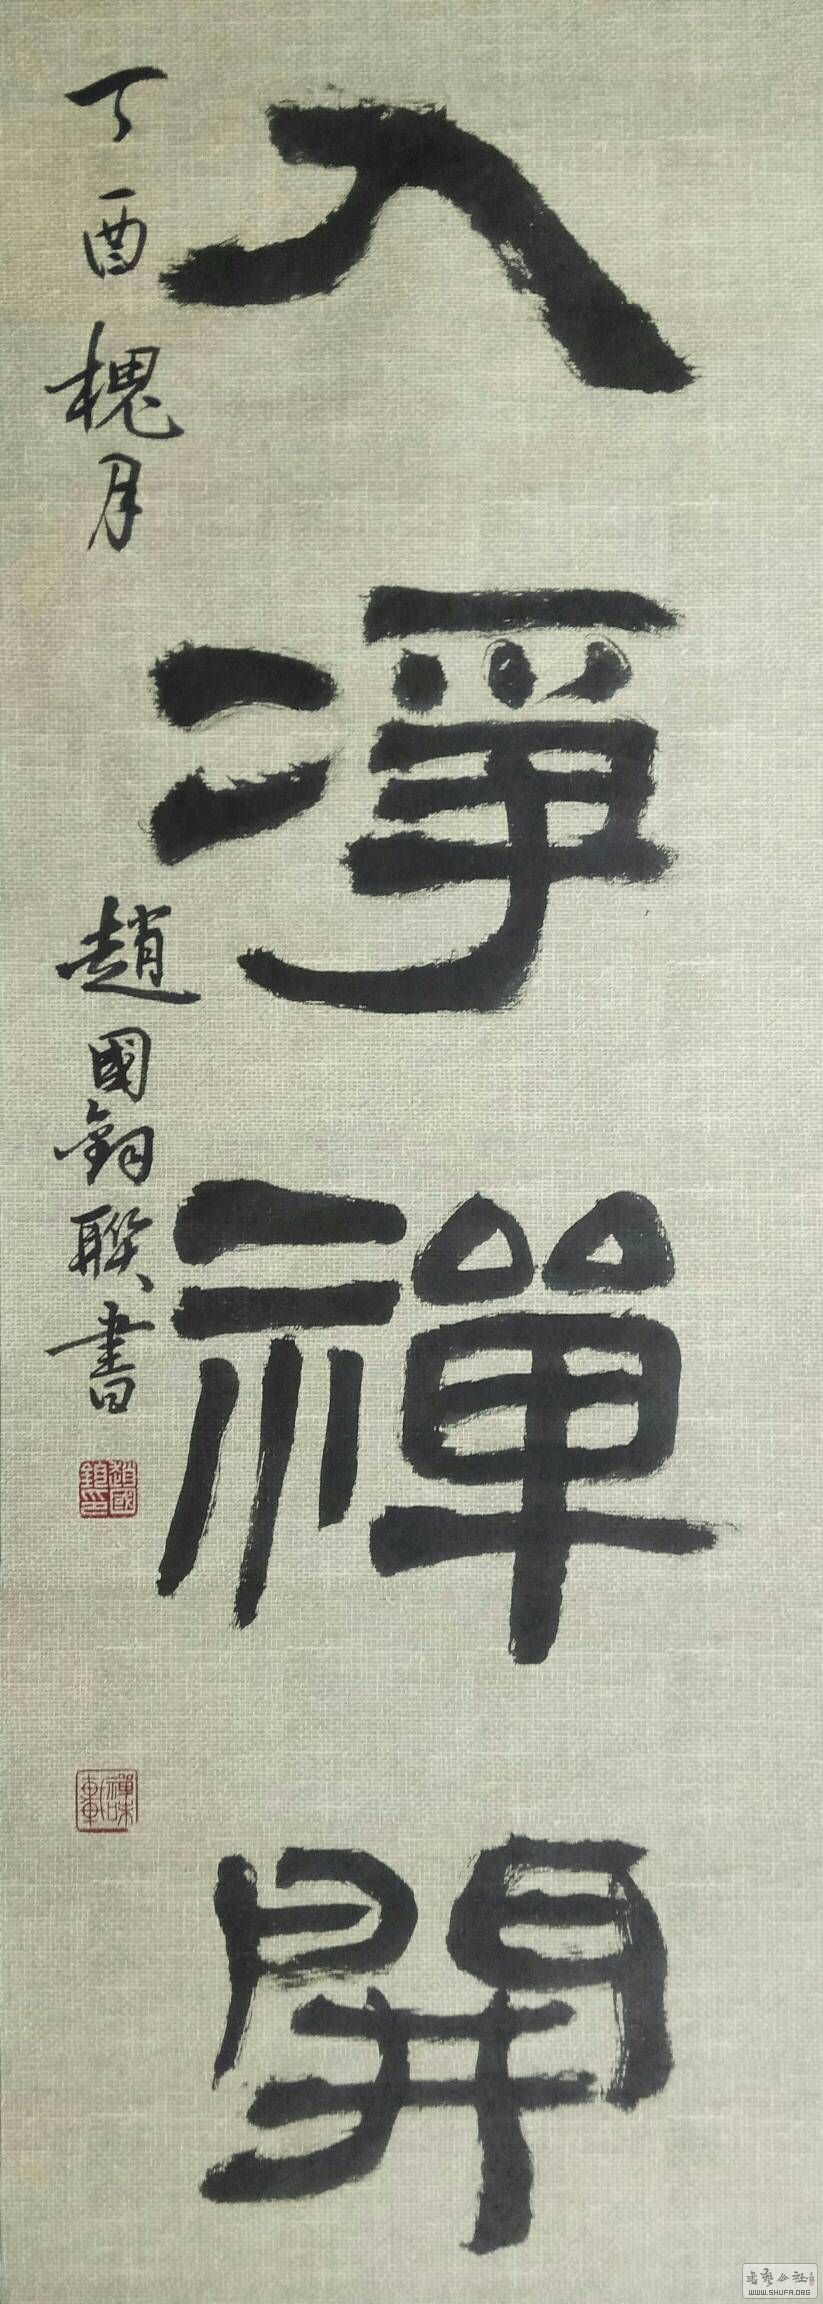 入凈禪開
丁酉槐月
趙國鈞聯書
趙國鈞印
禪味軒
书艺公社
WWW.SHUFA.ORG